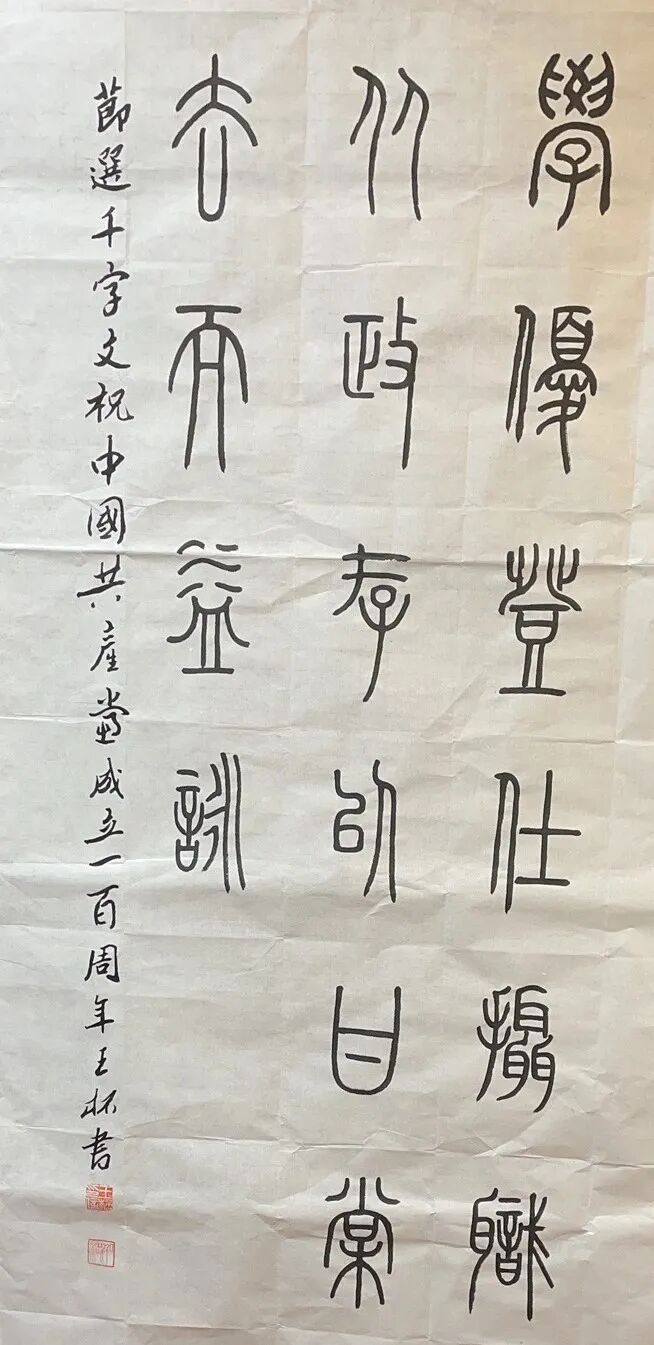 學優登仕攝職
从政存以甘棠
去而益詠
節選千字文祝中國共產黨成立一百周年王杯書